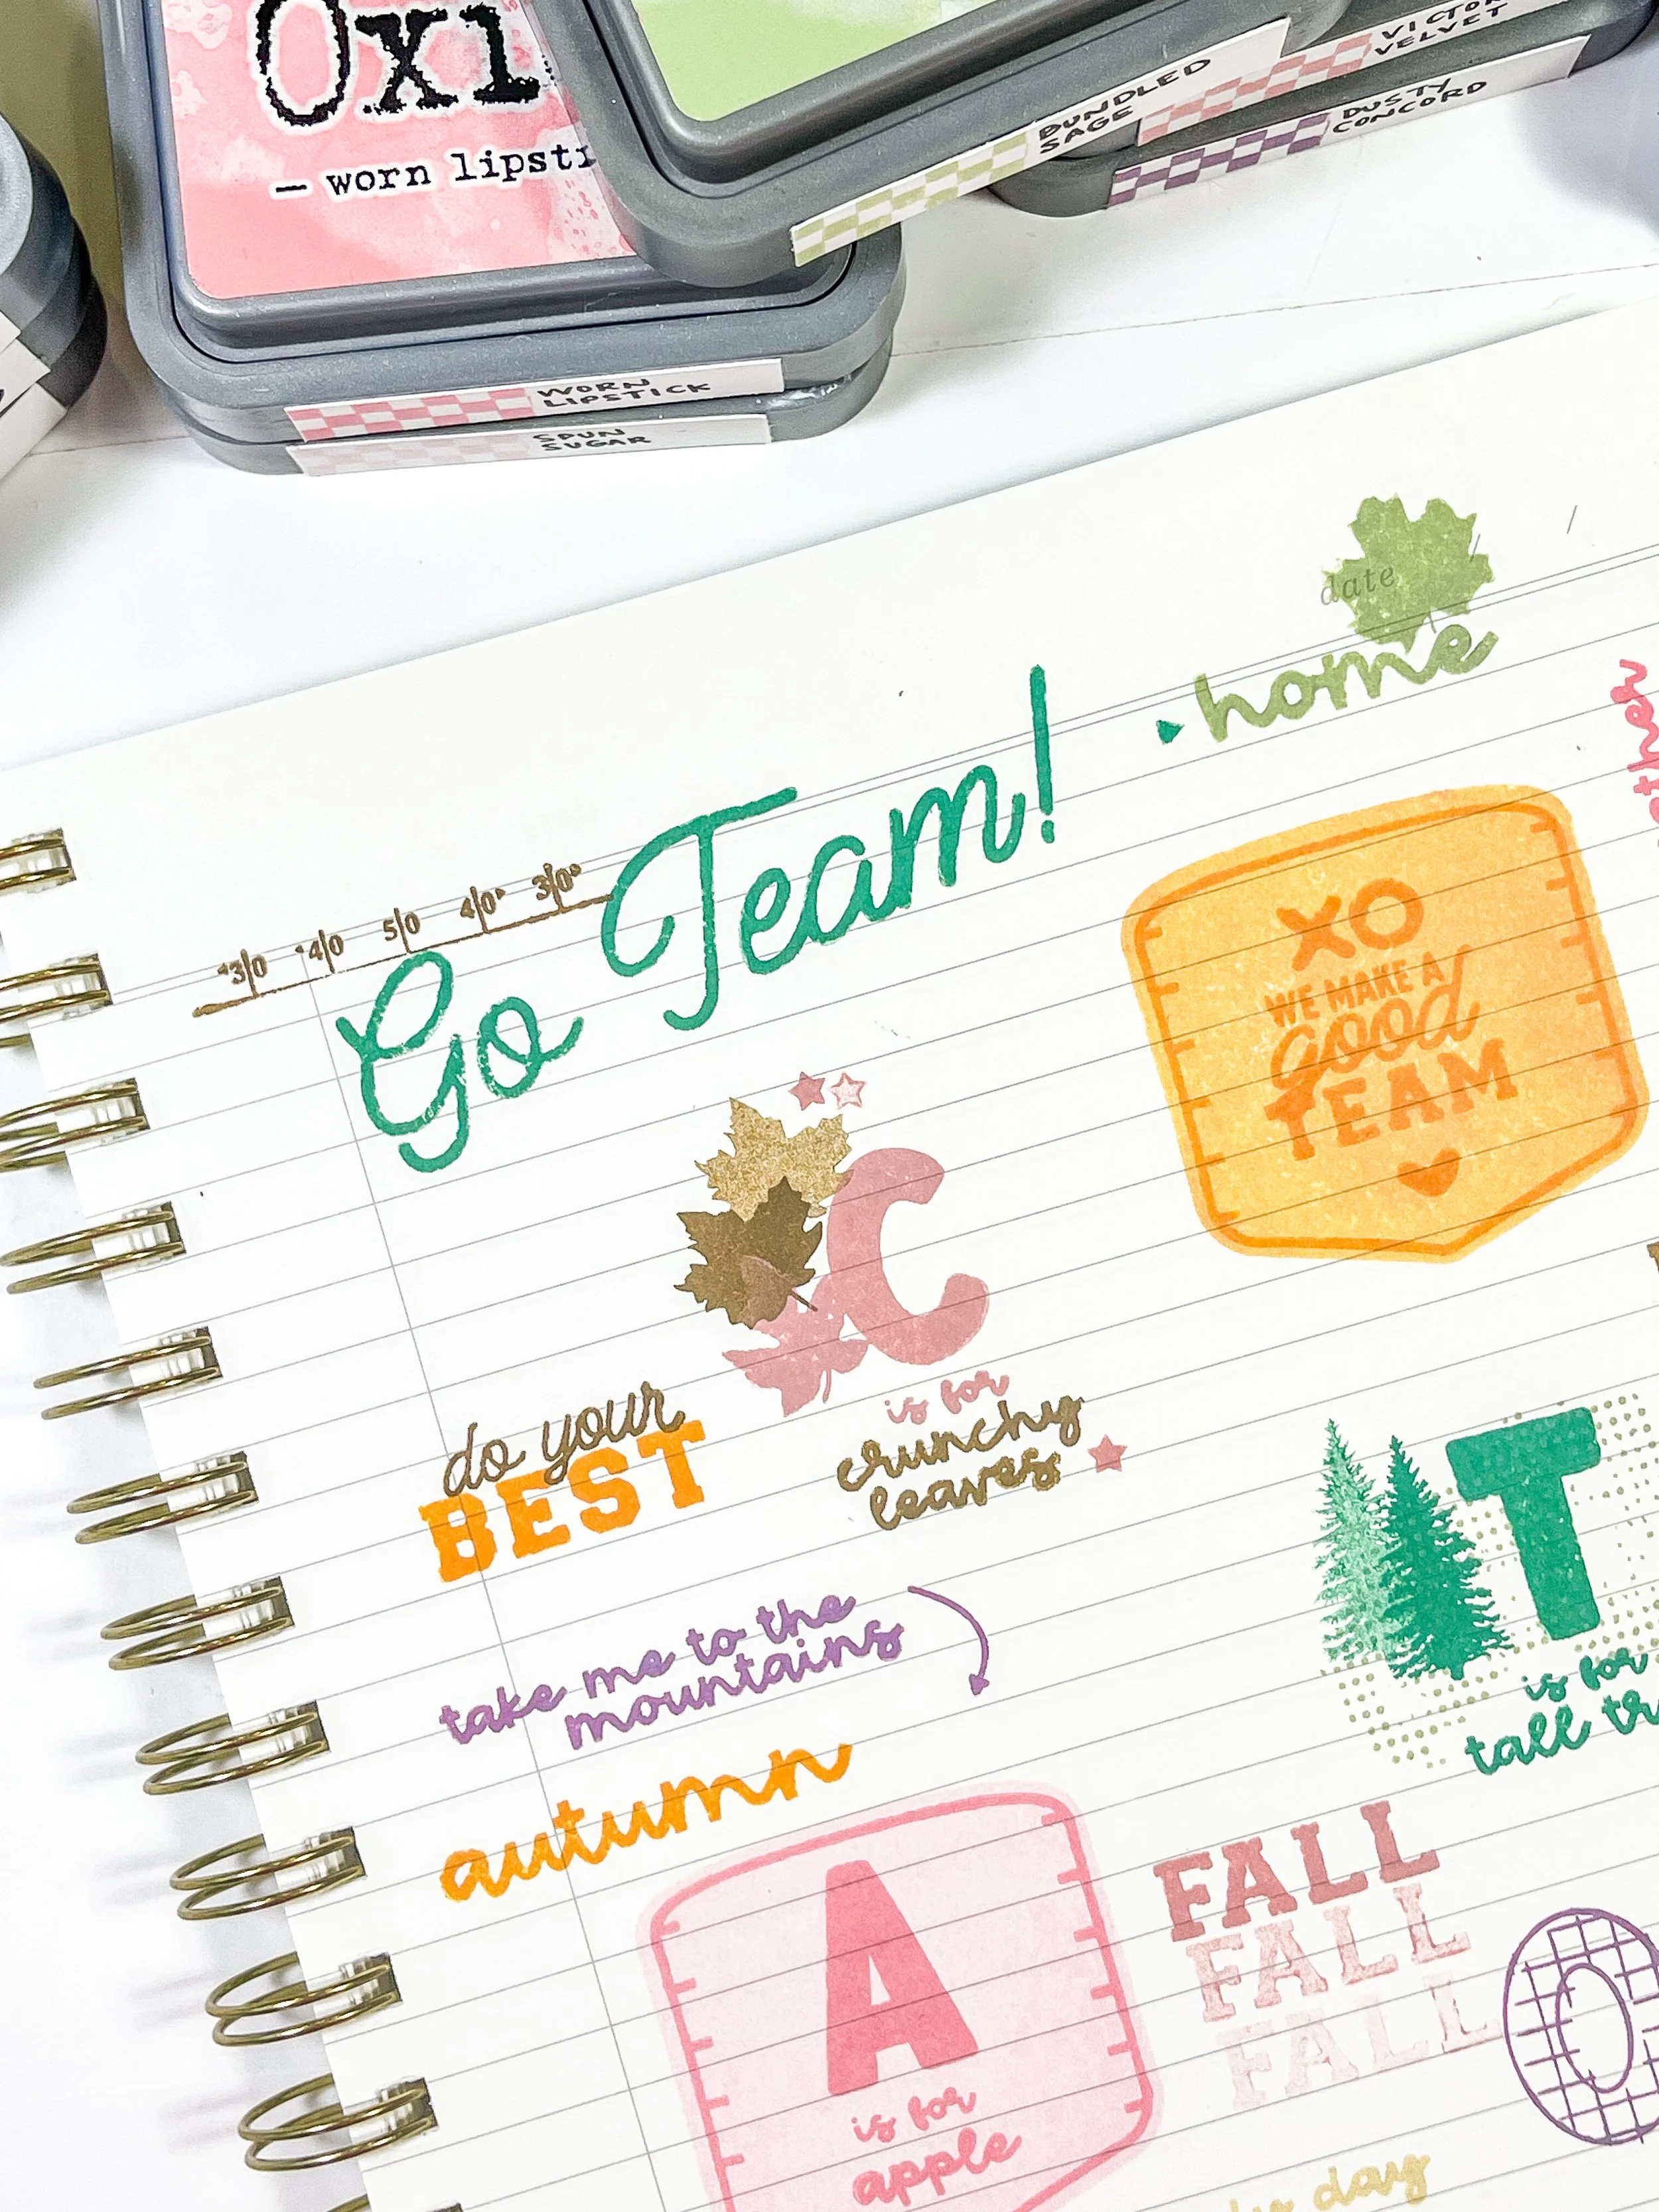 Oxi
— worn lipsti
BUNDLED
SAGE
VELVET
DUSTY
CONCORD
WORN
LIPSTICK
SPUN
SUGAR
date
home
Go Team!
30 40 50 40 30
XO
WE MAKE A
good
TEAM
C
is for
crunchy
leaves
do your
BEST
T
is for
tall
take me to the
mountains
autumn
A
is for
apple
FALL
FALL
FALL
O
day